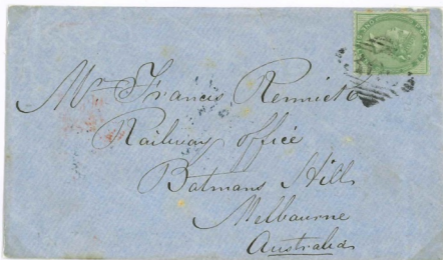 Mr Francis Rennick
Railway office
Batmans Hill
Melbourne
Australia